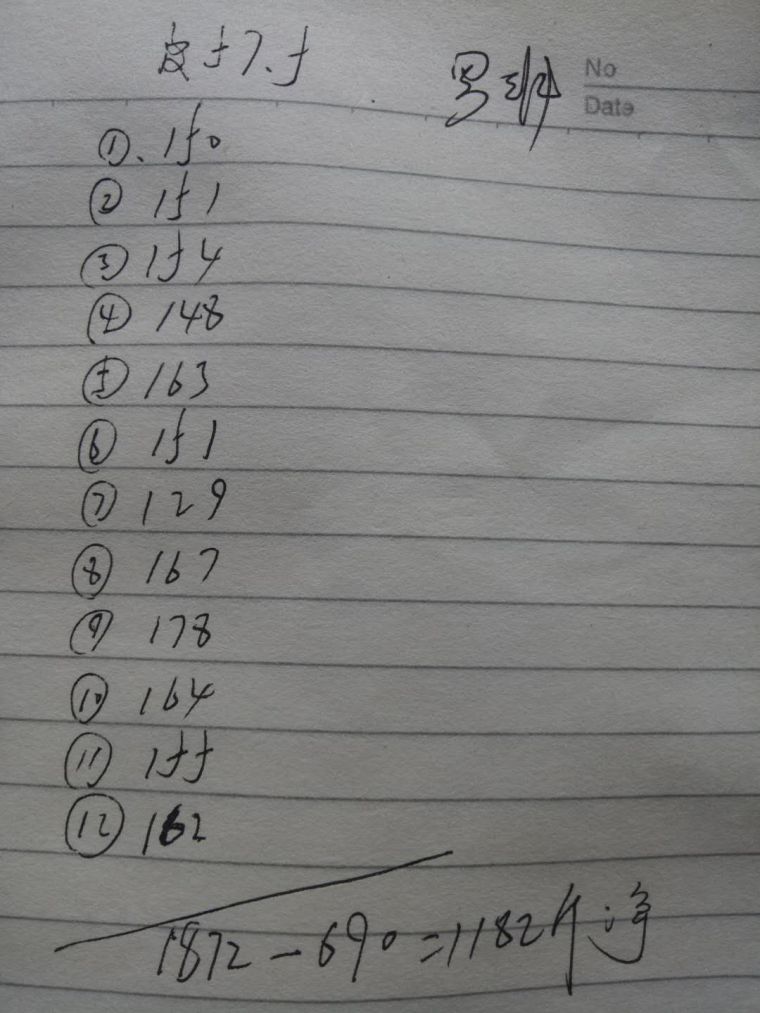 皮57.5
No
Date
①.150
② 151
③ 154
④ 148
⑤ 163
⑥ 151
⑦ 129
⑧ 167
⑨ 178
⑩ 164
⑪ 155
⑫ 162
1872-690=1182斤净